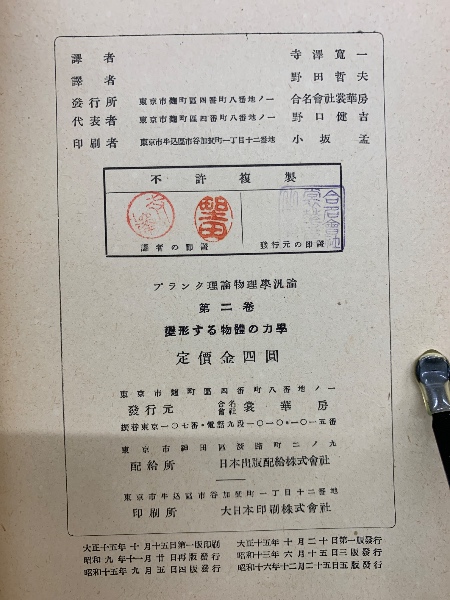 譯者 寺澤寬一
譯者 野田哲夫
發行所 東京市麴町區四番町八番地ノ一 合名會社裳華房
代表者 東京市麴町區四番町八番地ノ一 野口健吉
印刷者 東京市牛込區市谷加賀町一丁目十二番地 小坂孟
不許複製
譯者の印證 發行元の印證
プランク理論物理學汎論
第二卷
變形する物體の力學
定價金四圓
東京市麴町區四番町八番地ノ一
發行元 合名會社 裳華房
振替東京一〇七番・電話九段一〇一〇・一〇一五番
東京市神田區淡路町二ノ九
配給所 日本出版配給株式會社
東京市牛込區市谷加賀町一丁目十二番地
印刷所 大日本印刷株式會社
大正十五年十月十五日第一版印刷 大正十五年十月二十日第一版發行
昭和九年十一月廿日再版發行 昭和十三年六月十五日三版發行
昭和十五年九月五日四版發行 昭和十六年十二月二十五日五版發行